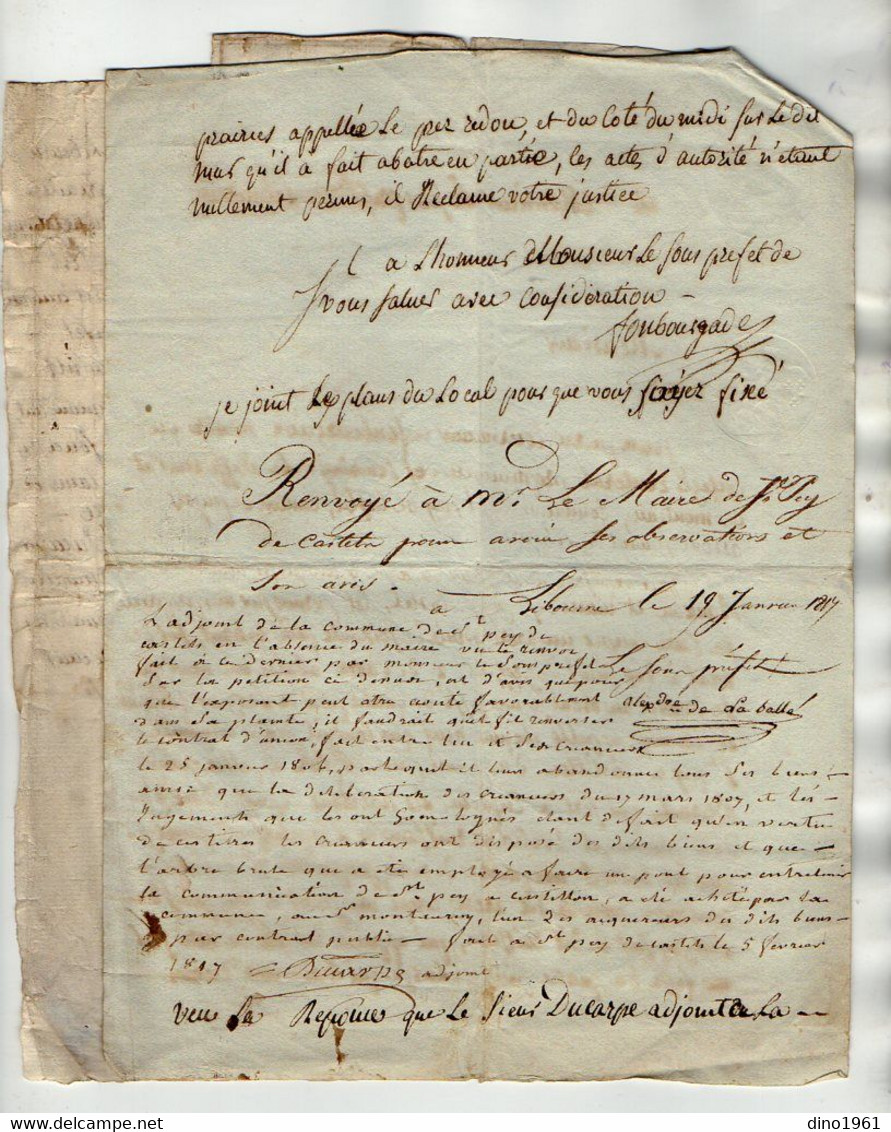 prairies appellée Le prez redon, et du Coté du midi sur Le dit
mur qu'il à fait abatre en partie, les actes d'autorité n'etant
nullement permis, il Reclame votre justice
il a L'honneur de Monsieur Le Sous prefet de
vous Saluer avec Consideration
fonbourgade
je joint Le plans du Local pour que vous Soiyez fixé
Renvoyé à Mr. Le Maire de St. Pey
de Castets pour avoir ses observations et
son avis.
à Libourne le 19 Janvier 1817
L'adjoint de la commune de St. pey de
castets en l'absence du maire vu le renvoi
fait à ce dernier par monsieur le Sous prefet
Le Sous préfet
Sur la petition ci dessus, est d'avis que pour
que l'exposant peut etre ecouté favorablement
dans Sa plainte, il faudrait qu'il fit renverser
le contrat d'union, fait entre lui et Ses creanciers
le 25 janvier 1806, par lequel il leur abandonne tous Ses biens
ainsi que la deliberation des creanciers du 17 mars 1807, et les
Jugements que les ont homologués etant de fait qu'en vertu
de ces titres les creanciers ont disposé des dits biens et que
l'arbre brute que a eté employé a faire un pont pour entretenir
la communication de St. pey a castillon, a eté acheté par la
commune, au Sr. l'un des acquereurs des dits biens
par contrat public - fait a St. pey de castets le 5 fevrier
1817 Ducarpe adjoint
veu La Reponce que Le Sieur Ducarpe adjoint de La
dino1961